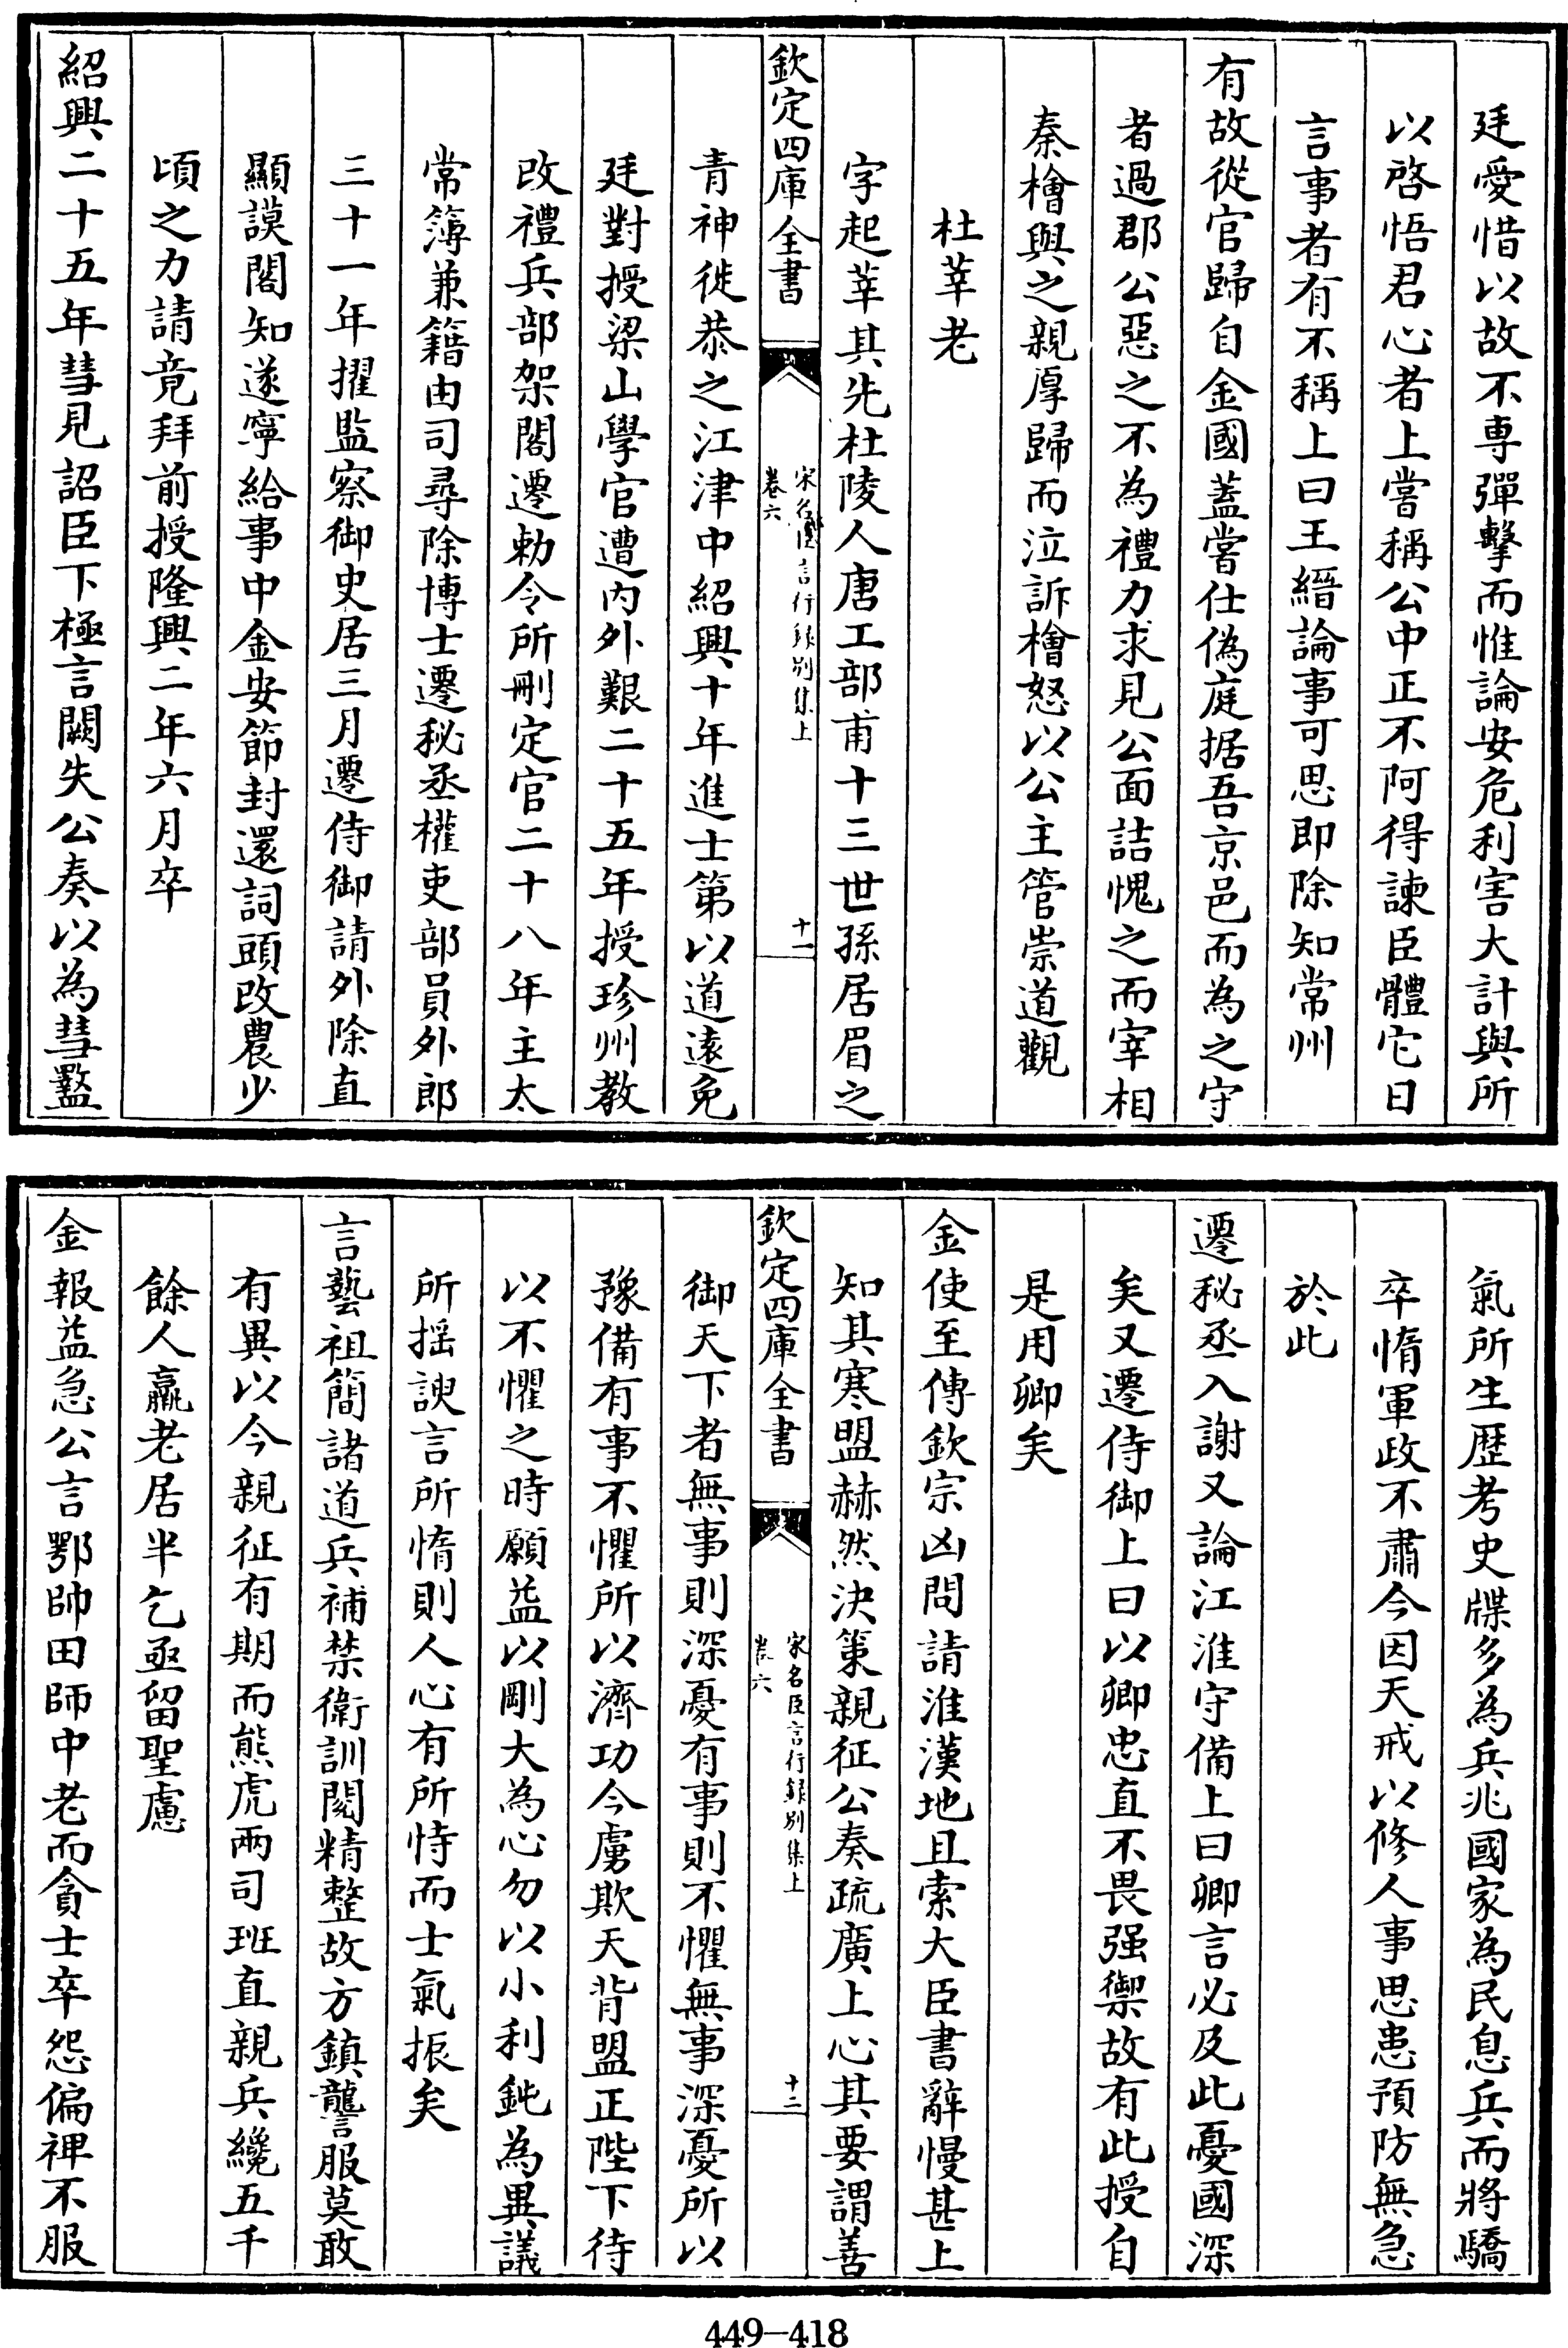 廷愛惜以故不専彈擊而惟論安危利害大計與所
以啓悟君心者上嘗稱公中正不阿得諫臣體它日
言事者有不稱上曰王縉論事可思即除知常州
有故從官歸自金國蓋嘗仕偽庭据吾京邑而為之守
者過郡公惡之不為禮力求見公面詰愧之而宰相
秦檜與之親厚歸而泣訴檜怒以公主管崇道觀
杜莘老
字起莘其先杜陵人唐工部甫十三世孫居眉之
欽定四庫全書
宋名臣言行錄別集上
卷六
十一
青神徙恭之江津中紹興十年進士第以道逺免
廷對授梁山學官遭内外艱二十五年授珍州教
改禮兵部架閣遷勅令所刪定官二十八年主太
常簿兼籍由司尋除博士遷秘丞權吏部員外郎
三十一年擢監察御史居三月遷侍御請外除直
顯謨閣知遂寧給事中金安節封還詞頭改農少
頃之力請竟拜前授隆興二年六月卒
紹興二十五年彗見詔臣下極言闕失公奏以為彗盭
氣所生歴考史牒多為兵兆國家為民息兵而將驕
卒惰軍政不肅今因天戒以修人事思患預防無急
於此
遷秘丞入謝又論江淮守備上曰卿言必及此憂國深
矣又遷侍御上曰以卿忠直不畏强禦故有此授自
是用卿矣
金使至傳欽宗凶問請淮漢地且索大臣書辭慢甚上
知其寒盟赫然決策親征公奏疏廣上心其要謂善
欽定四庫全書
宋名臣言行錄別集上
卷六
十二
御天下者無事則深憂有事則不懼無事深憂所以
豫備有事不懼所以濟功今虜欺天背盟正陛下待
以不懼之時願益以剛大為心勿以小利鈍為異議
所揺諛言所惰則人心有所恃而士氣振矣
言藝祖簡諸道兵補禁衛訓閲精整故方鎮讋服莫敢
有異以今親征有期而熊虎兩司班直親兵纔五千
餘人羸老居半乞亟留聖慮
金報益急公言鄂帥田師中老而貪士卒怨偏裨不服
449—418